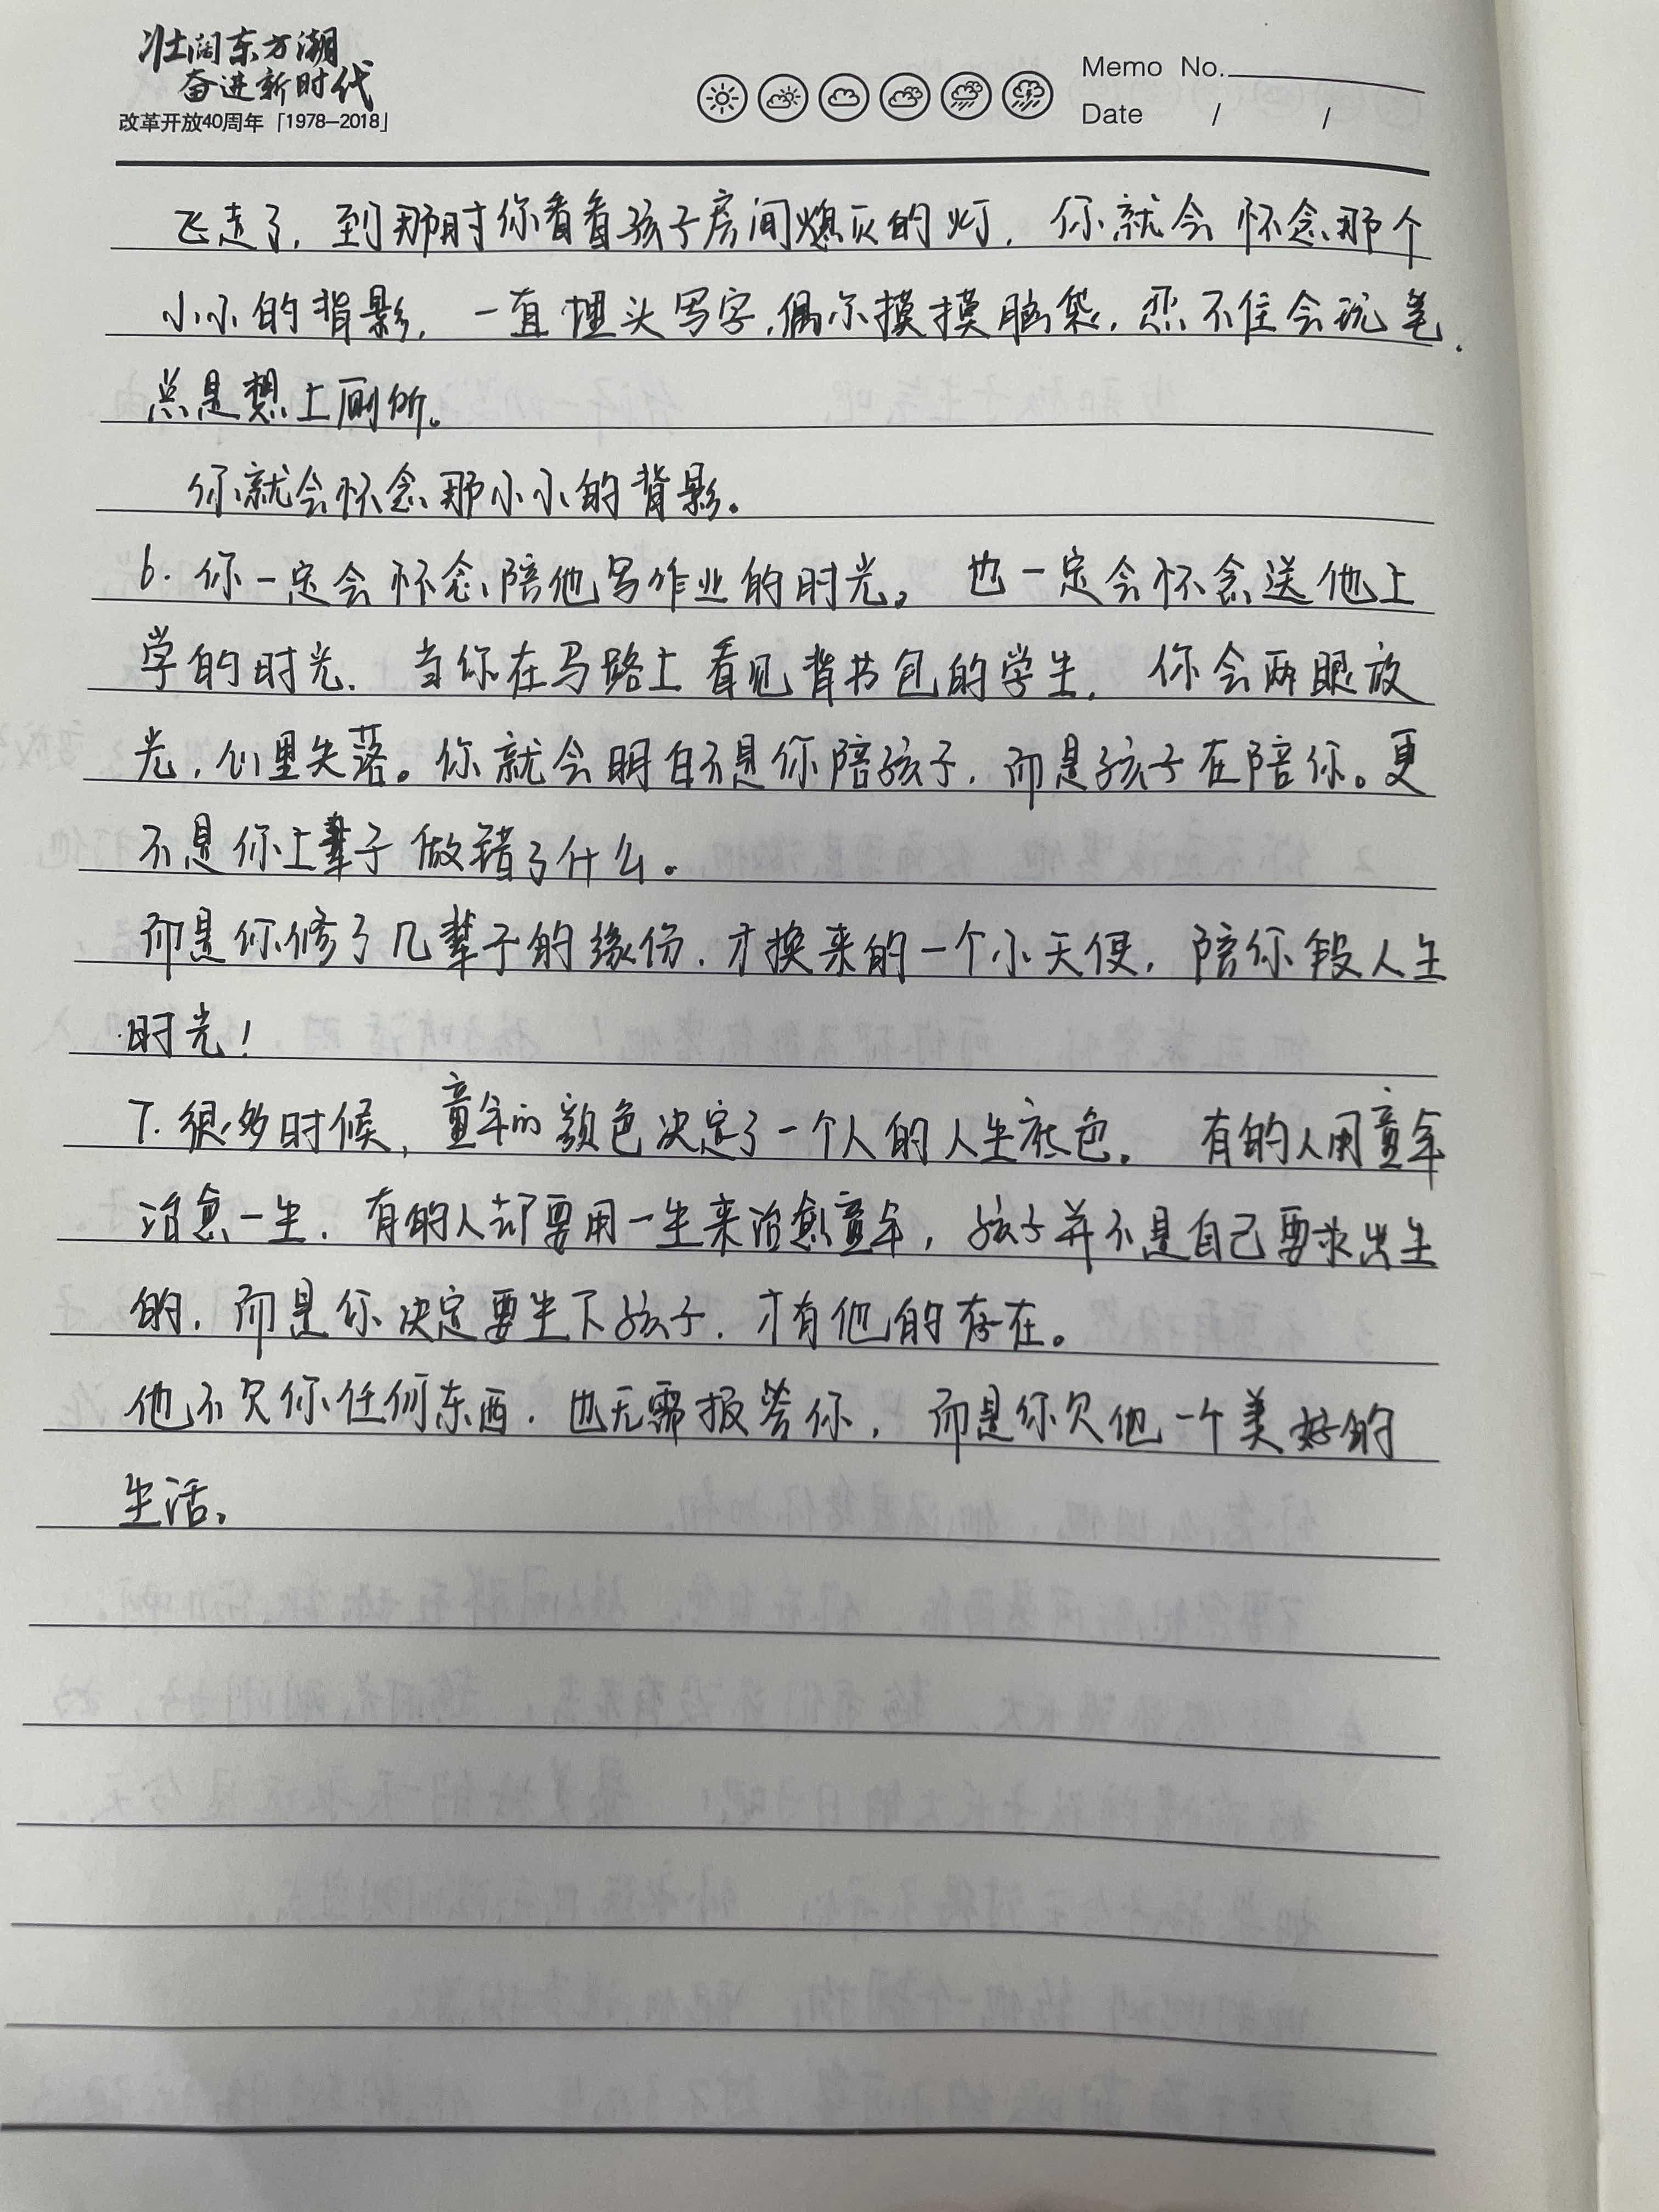 壮阔东方潮
奋进新时代
改革开放40周年「1978-2018」
Memo No.
Date / /
飞走了，到那时你看看孩子房间熄灭的灯，你就会怀念那个
小小的背影，一直埋头写字，偶尔摸摸脑袋，忍不住会玩笔，
总是想上厕所。
你就会怀念那小小的背影。
6. 你一定会怀念陪他写作业的时光。也一定会怀念送他上
学的时光．当你在马路上看见背书包的学生，你会两眼放
光，心里失落。你就会明白不是你陪孩子，而是孩子在陪你。更
不是你上辈子做错了什么。
而是你修了几辈子的缘份．才换来的一个小天使，陪你段人生
时光！
7. 很多时候，童年的颜色决定了一个人的人生底色。有的人用童年
治愈一生．有的人却要用一生来治愈童年，孩子并不是自己要求出生
的，而是你决定要生下孩子．才有他的存在。
他不欠你任何东西．也无需报答你，而是你欠他一个美好的
生活。